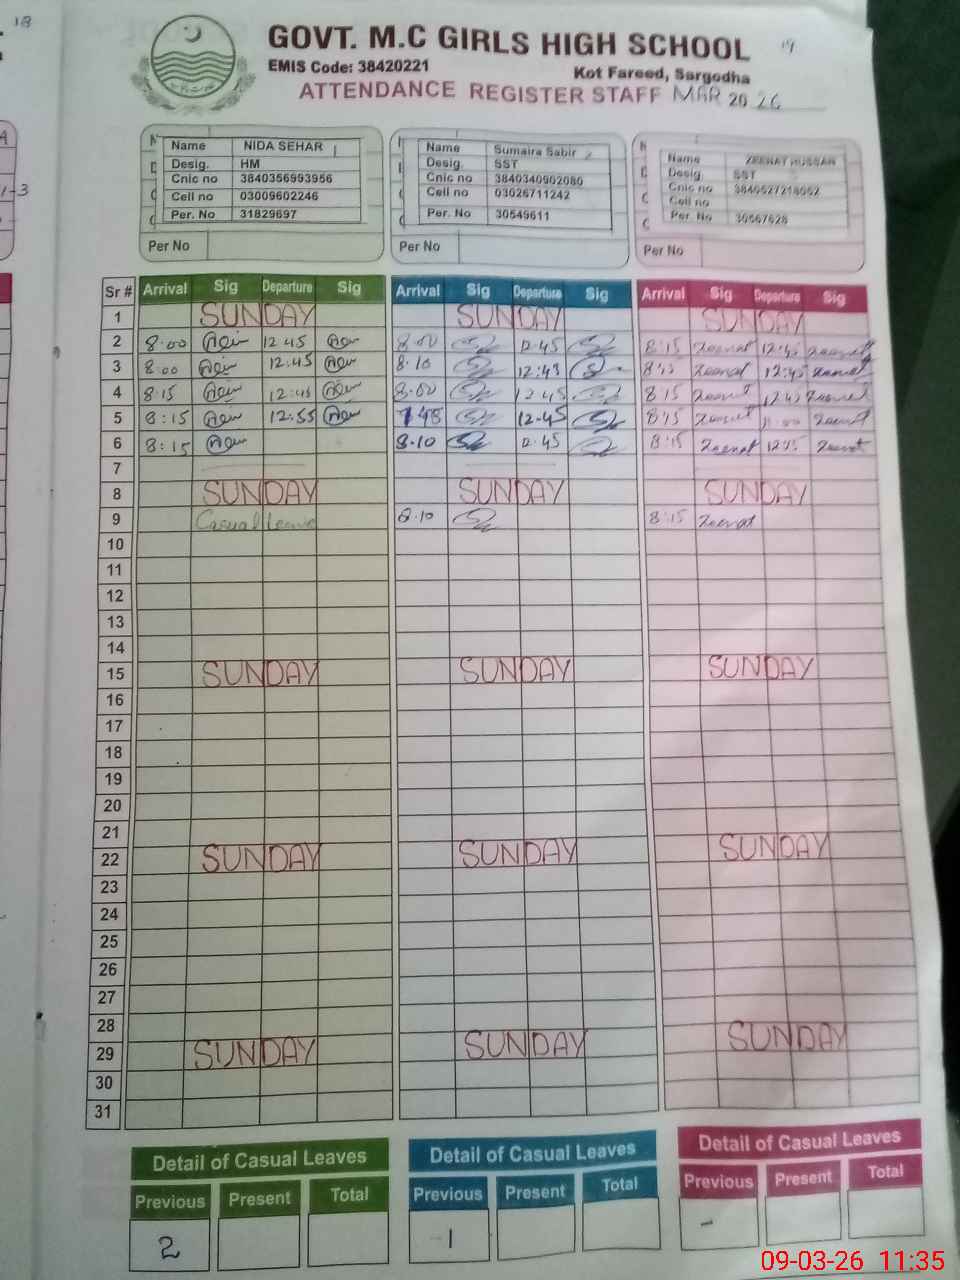 18
19
GOVT. M.C GIRLS HIGH SCHOOL
EMIS Code: 38420221
Kot Fareed, Sargodha
ATTENDANCE REGISTER STAFF MAR 2026
Name NIDA SEHAR
Desig. HM
Cnic no 3840356993956
Cell no 03009602246
Per. No 31829697
Per No
Name Sumaira Sabir
Desig. SST
Cnic no 3840340902080
Cell no 03026711242
Per. No 30549611
Per No
Name ZEENAT HUSSAIN
Desig. SST
Cnic no
Cell no
Per. No 30567628
Per No
Sr # Arrival Sig Departure Sig Arrival Sig Departure Sig Arrival Sig Departure Sig
1 SUNDAY SUNDAY SUNDAY
2 8:00 12:45 8:00 12:45 8:15 Zeenat 12:45 Zeenat
3 8:00 12:45 8:10 12:45 8:15 Zeenat 12:45 Zeenat
4 8:15 12:45 8:00 12:45 8:15 Zeenat 12:45 Zeenat
5 8:15 12:55 7:48 12:45 8:15 Zeenat 11:00 Zeenat
6 8:15 8:10 12:45 8:15 Zeenat Zeenat
7
8 SUNDAY SUNDAY SUNDAY
9 Casual Leave 8:10 8:15 Zeenat
10
11
12
13
14
15 SUNDAY SUNDAY SUNDAY
16
17
18
19
20
21
22 SUNDAY SUNDAY SUNDAY
23
24
25
26
27
28
29 SUNDAY SUNDAY SUNDAY
30
31
Detail of Casual Leaves Detail of Casual Leaves Detail of Casual Leaves
Previous Present Total Previous Present Total Previous Present Total
2 1 -
09-03-26 11:35